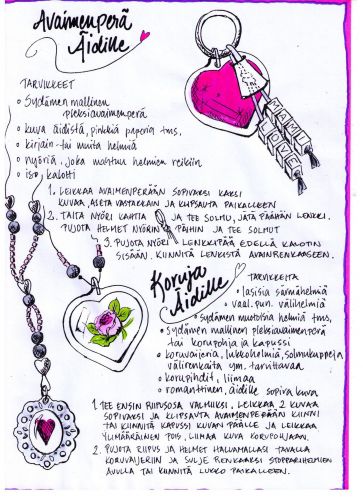 Avaimenperä
Äidille
TARVIKKEET
o Sydämen mallinen
pleksiavaimenperä
o kuva äidistä, pinkkiä paperia tms.
o kirjain- tai muita helmiä
o nyöriä, joka mahtuu helmien reikiin
o iso kalotti
1. LEIKKAA AVAIMENPERÄÄN SOPIVAKSI KAKSI
KUVAA, ASETA VASTAKKAIN JA KLIPSAUTA PAIKALLEEN
2. TAITA NYÖRI KAHTIA JA TEE SOLMU, JÄTÄ PÄÄHÄN LENKKI.
PUJOTA HELMET NYÖRIN PÄIHIN JA TEE SOLMUT
3. PUJOTA NYÖRI LENKKIPÄÄ EDELLÄ KALOTIN
SISÄÄN. KIINNITÄ LENKISTÄ AVAINRENKAASEEN.
LOVE
Koruja
Äidille
TARVIKKEITA
• lasisia särmähelmiä
• vaal.pun. välihelmiä
• sydämen muotoisia helmiä tms,
• sydämen mallinen pleksiavaimenperä
tai korupohja ja kapussi
• koruvaijeria, lukkohelmiä, solmukuppeja
välirenkaita ym. tarvittavaa
• korupihdit, liimaa
• romanttinen, äidille sopiva kuva
1. TEE ENSIN RIIPUSOSA VALMIIKSI. LEIKKAA 2 KUVAA
SOPIVAKSI JA KLIPSAUTA AVAIMENPERÄÄN KIINNI
TAI KIINNITÄ KAPUSSI KUVAN PÄÄLLE JA LEIKKAA
YLIMÄÄRÄINEN POIS. LIIMAA KUVA KORUPOHJAAN.
2. PUJOTA RIIPUS JA HELMET HALUAMALLASI TAVALLA
KORUVAIJERIIN JA SULJE RENKAAKSI STOPPARIHELMIEN
AVULLA TAI KIINNITÄ LUKKO PAIKALLEEN.